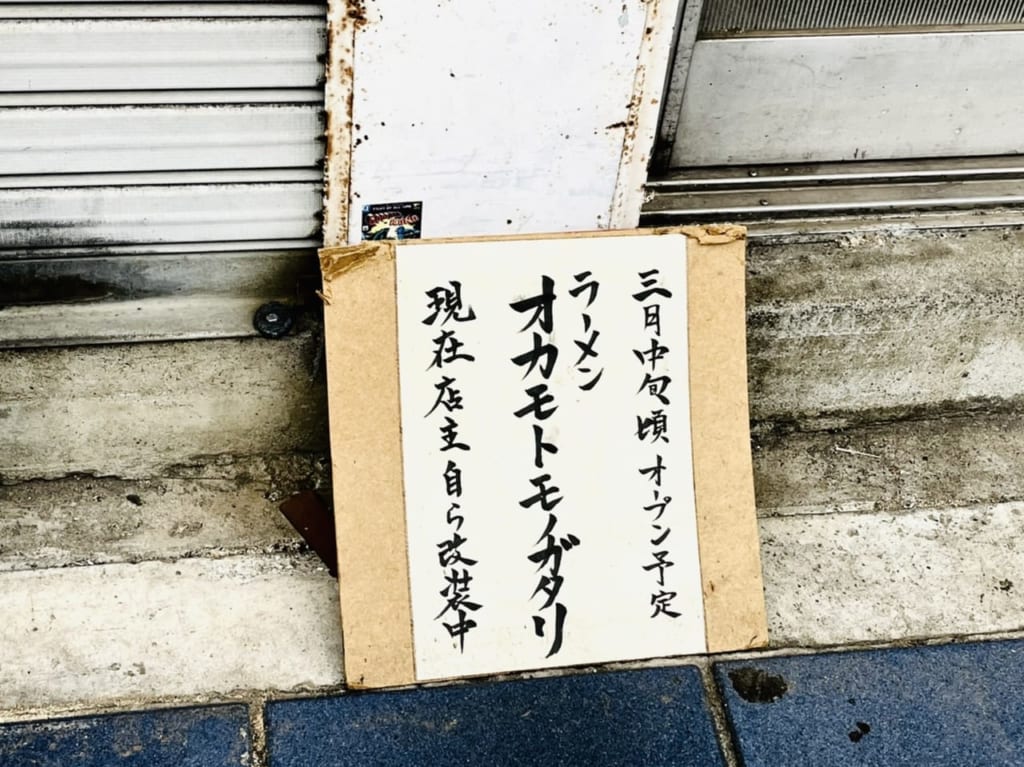 三月中旬頃 オープン予定
ラーメン
オカモトモノガタリ
現在店主自ら改装中